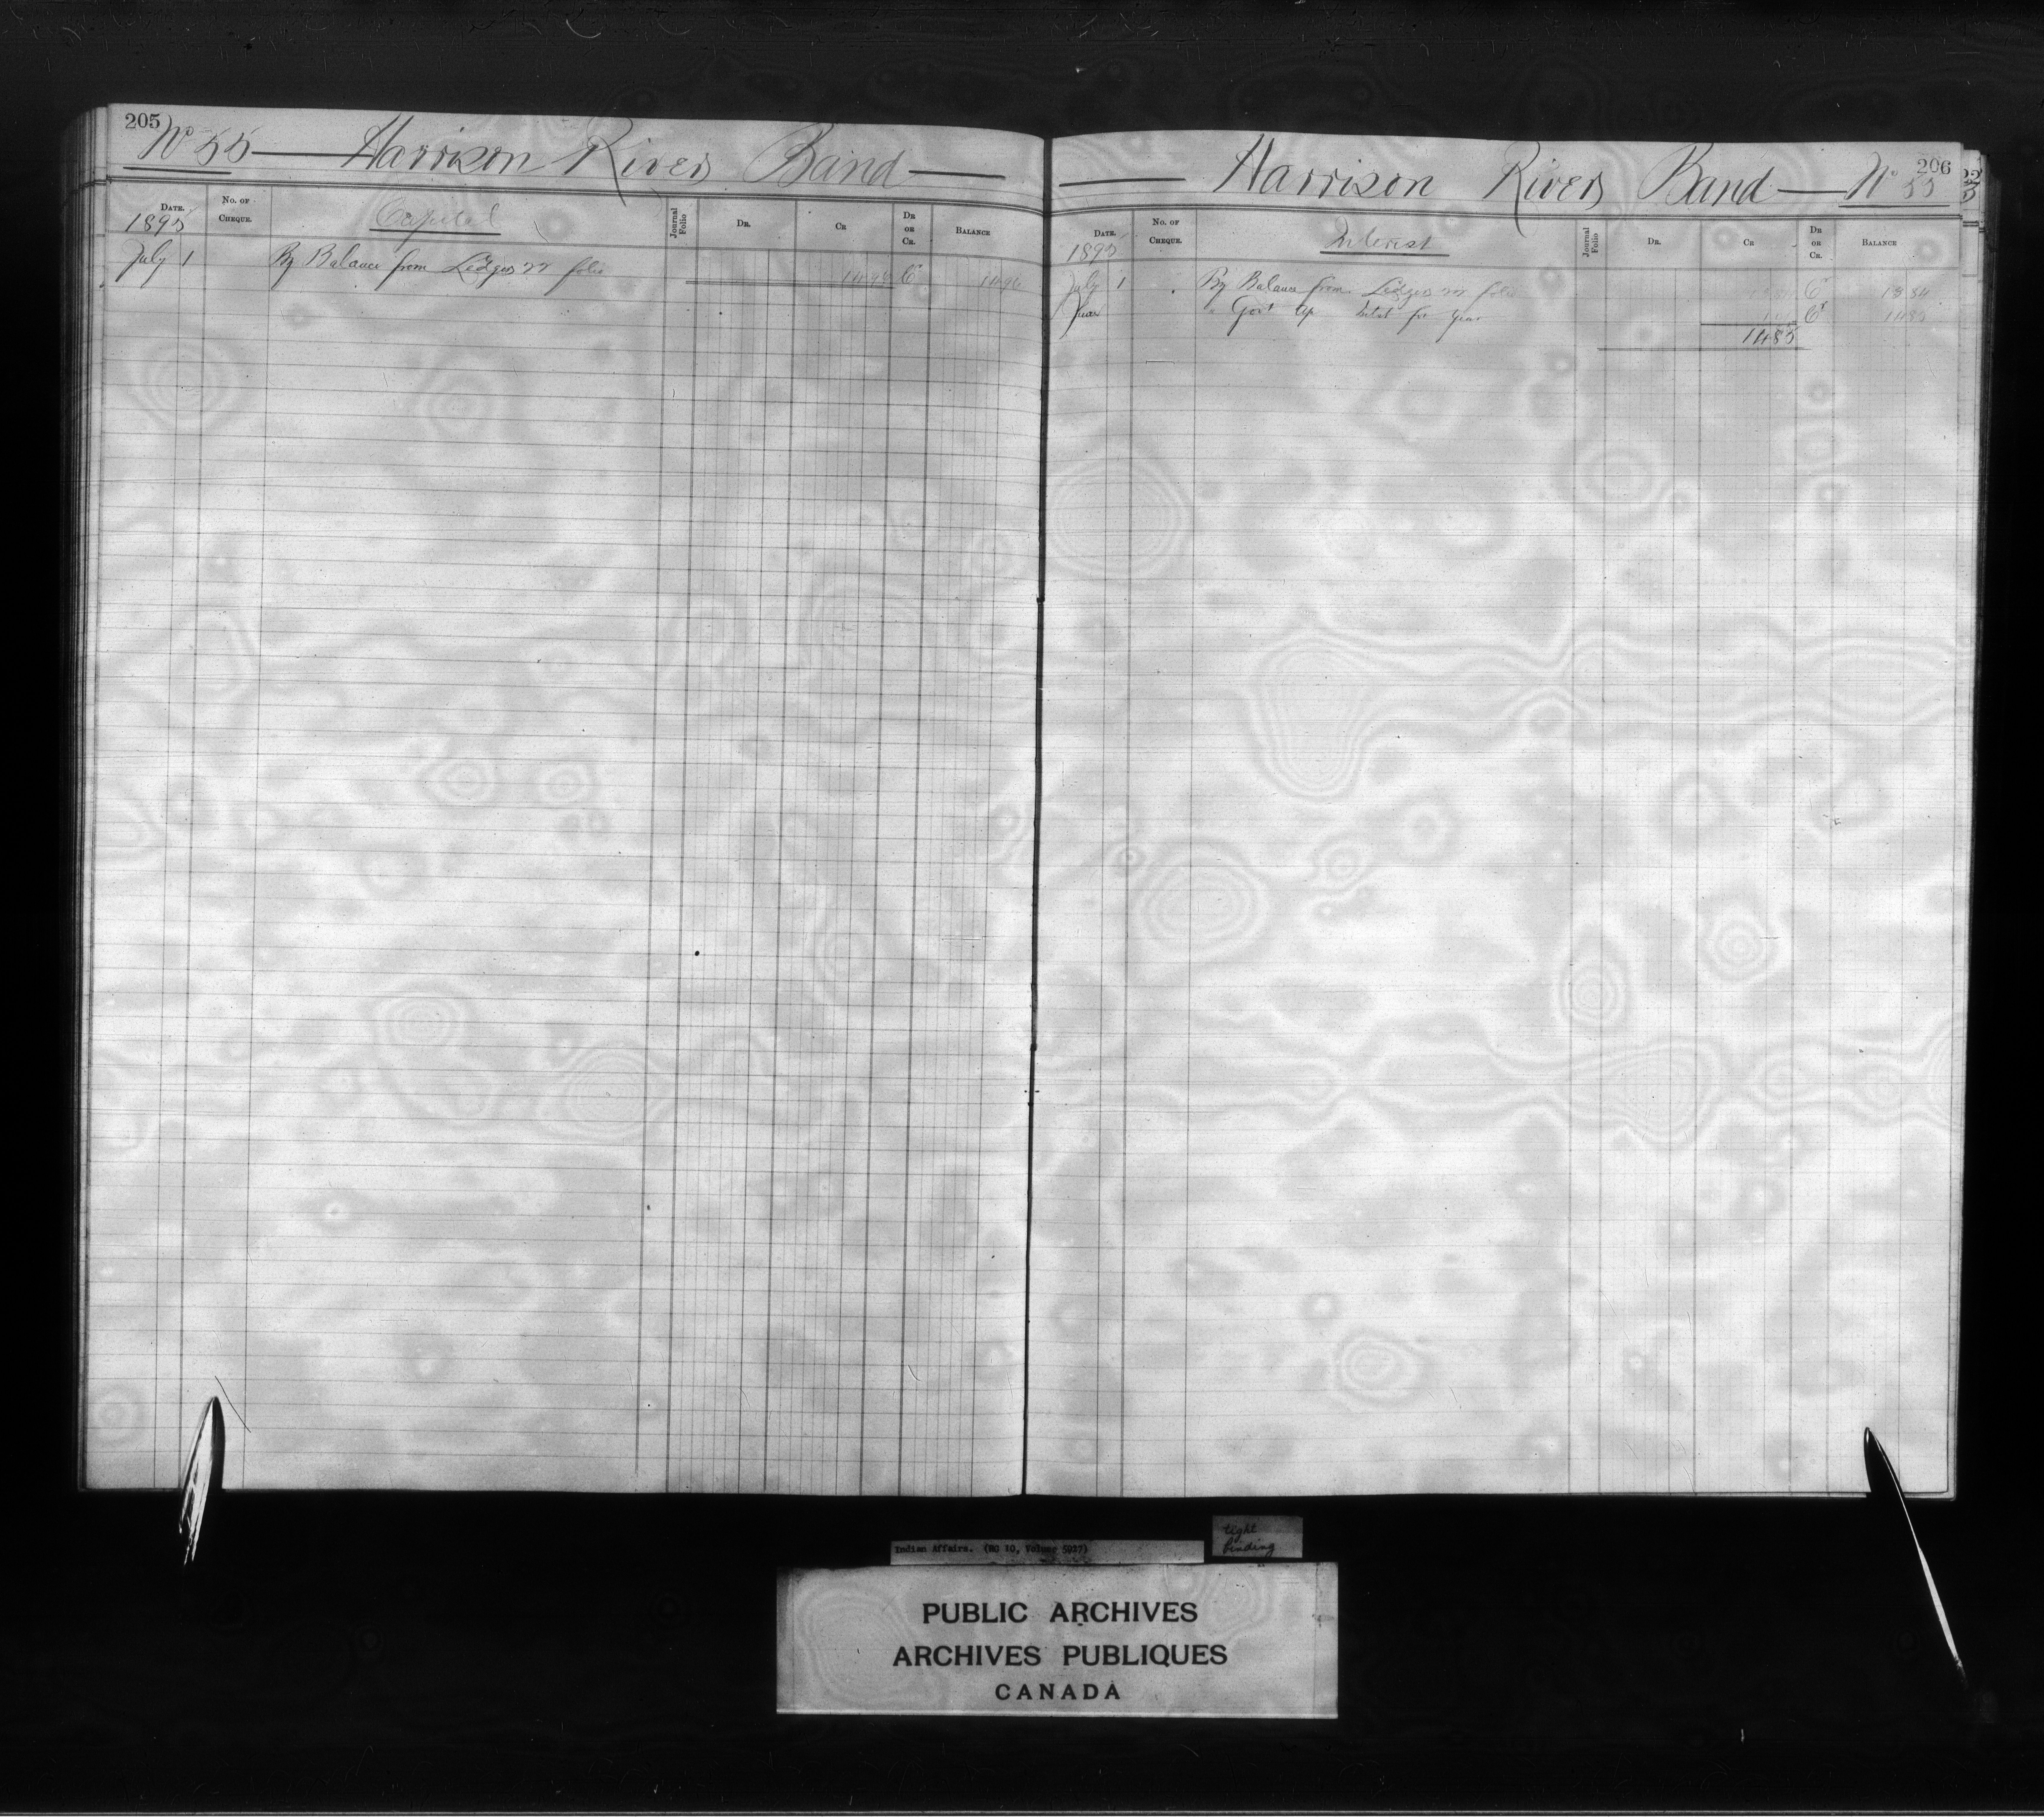 205
No 55 — Harrison River Band —
DATE. No. OF CHEQUE. Capital Journal Folio DR. CR DR OR CR. BALANCE
1895
July 1 By Balance from Ledger 22 folio 1496 Cr 1496
206
— Harrison River Band — No 55
DATE. No. OF CHEQUE. Interest Journal Folio DR. CR DR OR CR. BALANCE
1895
July 1 By Balance from Ledger 22 folio Cr 1384
" Govt for year Cr 1485
1485
Indian Affairs. (RG 10, Volume 5927)
tight
binding
PUBLIC ARCHIVES
ARCHIVES PUBLIQUES
CANADA